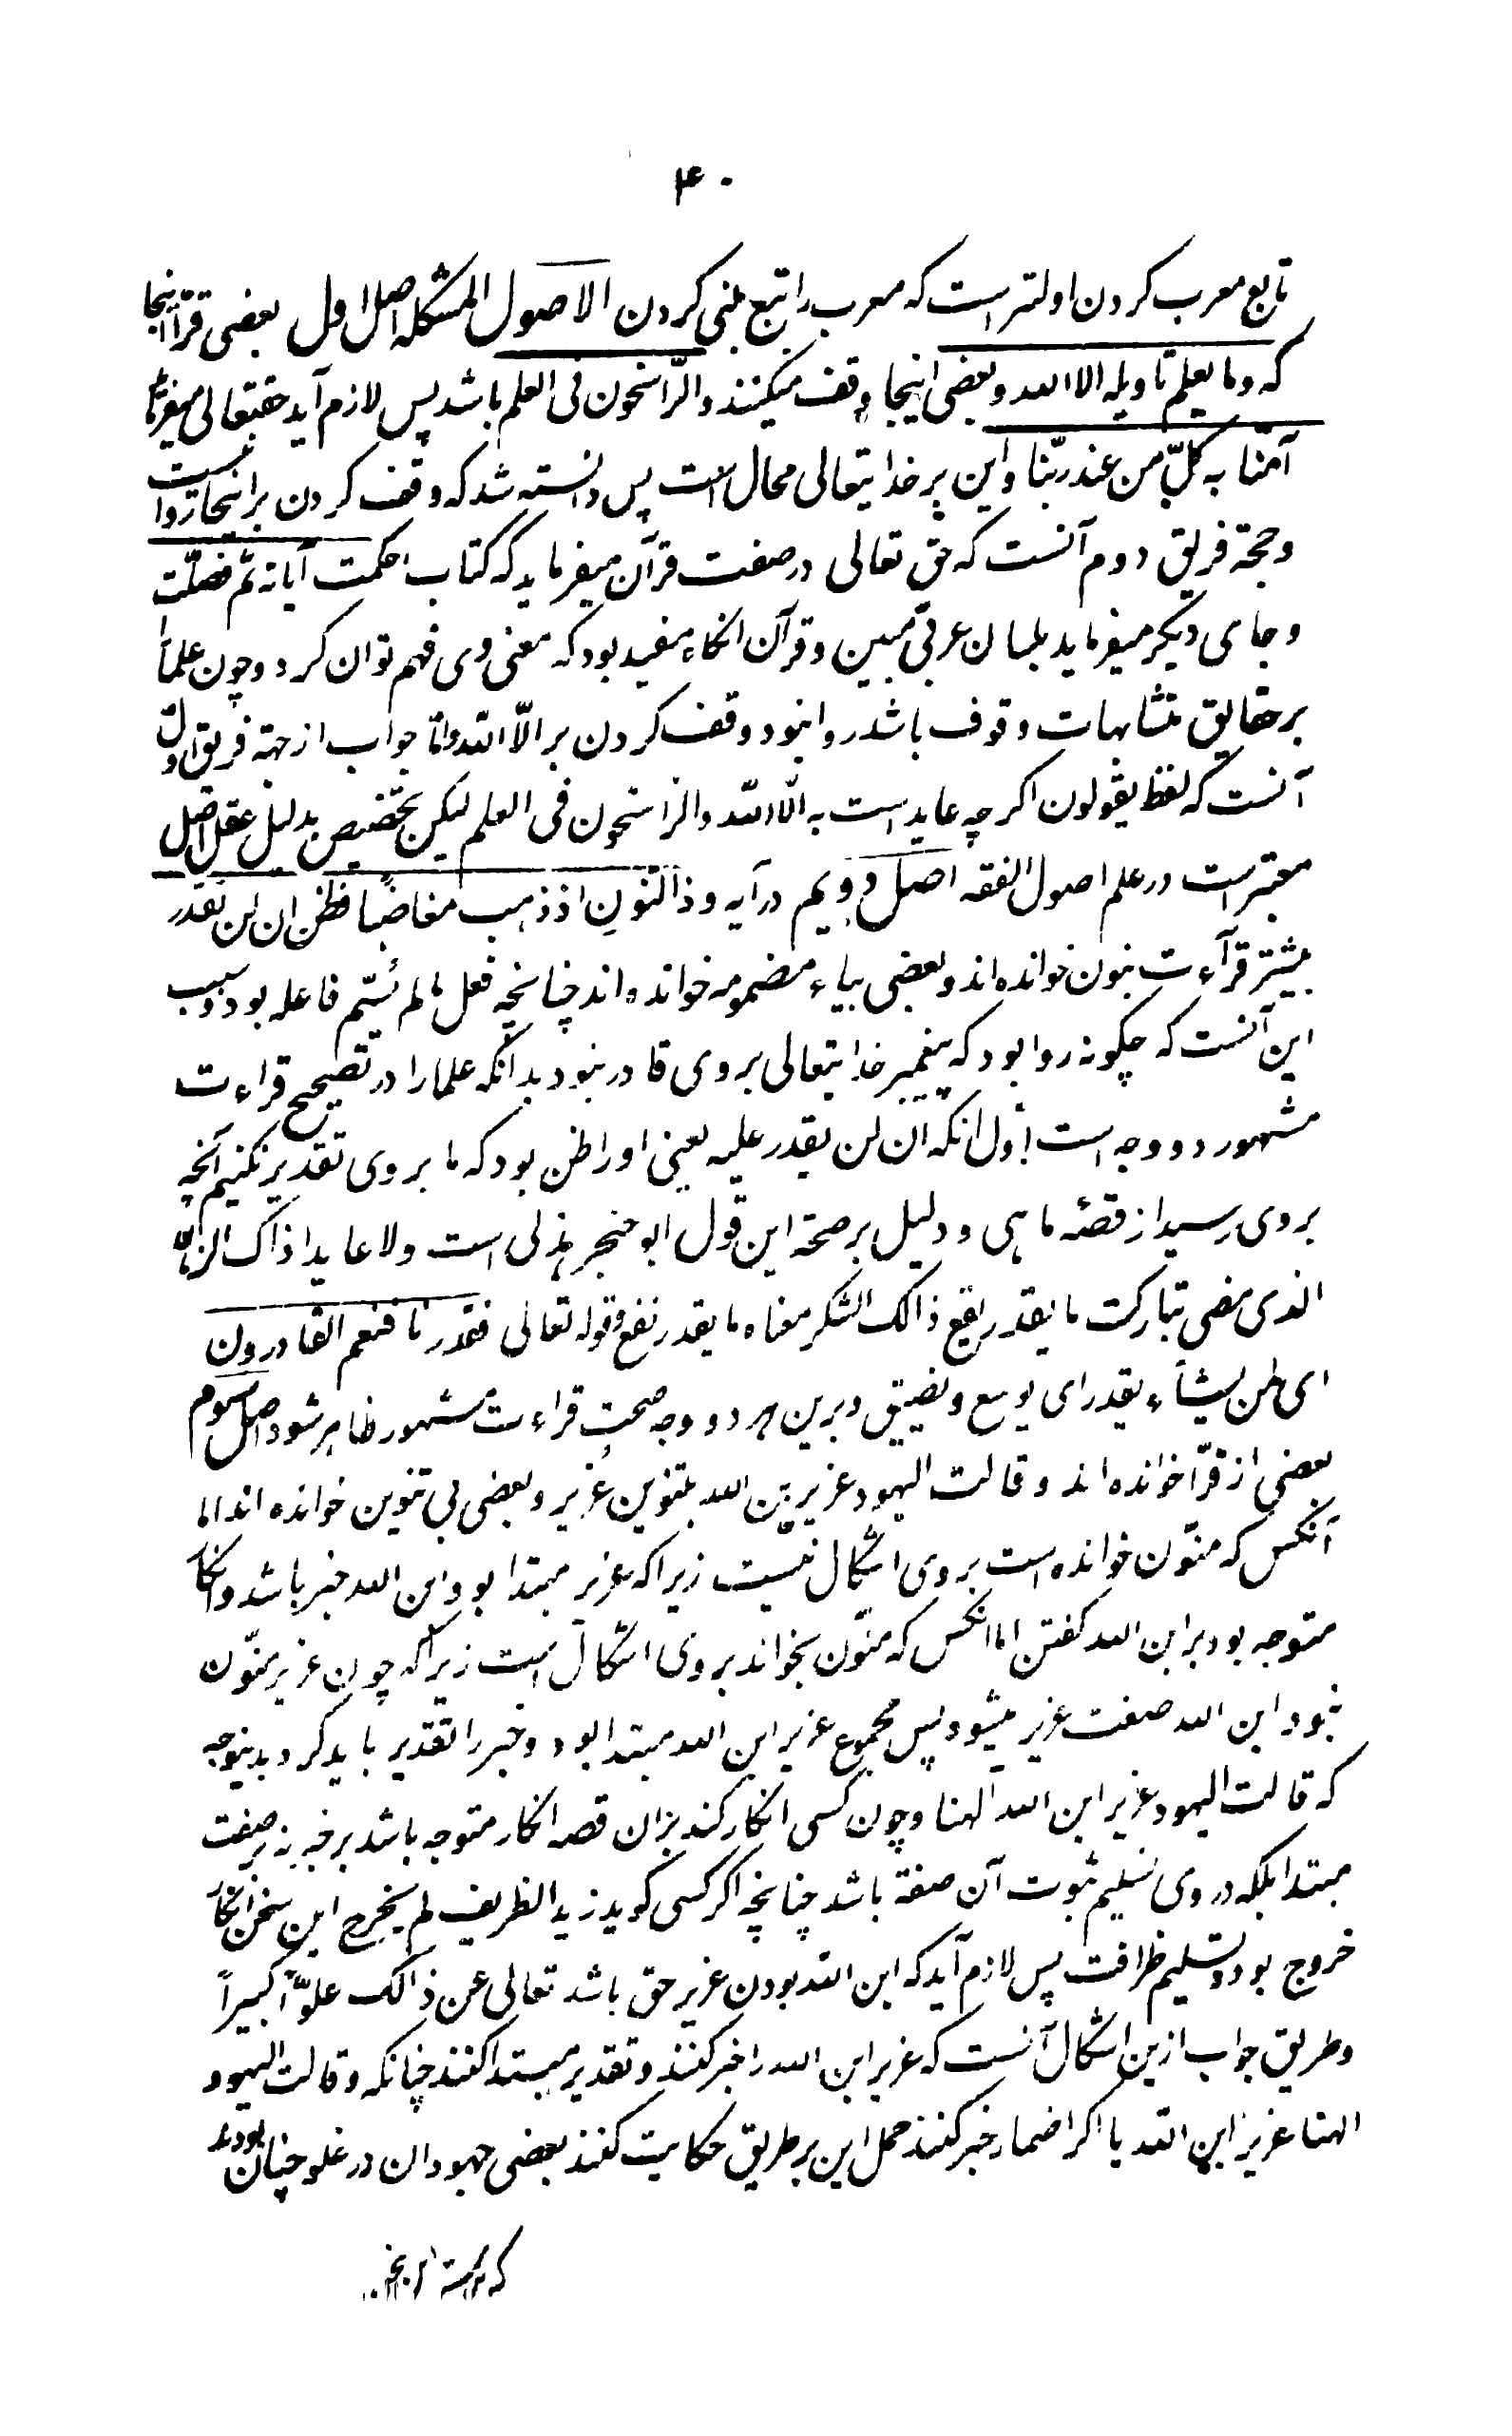 ۴۰
تابع معرب کردن اولیتر است که معرب را تبع مبنی کردن الاصول المشکله اصل اول بعضی قرآ اینجا
که وما یعلم تاویله الا الله وبعضی اینجا وقف میکنند والرّاسخون فی العلم باشد پس لازم آید حقتعالی میفرماید
آمنّا به کلّ من عند ربّنا واین بر خدایتعالی محال است پس دانسته شد که وقف کردن بر اینجا روا نیست
وحجة فریق دوم آنست که حق تعالی در صفت قرآن میفرماید که کتاب احکمت آیاته ثم فصلت
وجای دیگر میفرماید بلسان عربیّ مبین وقرآن انگاه مفید بود که معنی وی فهم توان کرد وچون علمآ را
بر حقایق متشابهات وقوف باشد روا نبود وقف کردن بر الّا الله وامّا جواب از حجة فریق اول
آنست که لفظ یقولون اگر چه عاید است به الّا الله والراسخون فی العلم لیکن تخصیص بدلیل عقل اصل
معتبر است در علم اصول الفقه اصل دویم در آیه وذا النّون اذ ذهب مغاضبًا فظن ان لن نقدر
بیشتر قرآءت بنون خوانده اند وبعضی بیاء مضمومه خوانده اند چنانچه فعل ما لم یُسمّ فاعله بود وسبب
این آنست که چگونه روا بود که پیغمبر خدایتعالی بر وی قادر نبود بدانکه علما را در تصحیح قراءت
مشهور دو وجه است اول انکه ان لن یقدر علیه یعنی او را ظن بود که ما بر وی تقدیر نکنیم آنچه
بر وی رسید از قصّه ماهی ودلیل بر صحة این قول ابو صخر هذلی است ولا عایدا ذاک الزمان
الذی مضی تبارکت ما یقدر یقع ذالک الشکر معناه ما یقدر نفع وقوله تعالی فقدرنا فنعم القادرون
ای لمن یشآء یقدر ای یوسع ویضیق وبرین هر دو وجه صحت قراءت مشهور ظاهر شود اصل سوم
بعضی از قرّا خوانده اند وقالت الیهود عزیر بن الله بتنوین عُزیر وبعضی بی تنوین خوانده اند اما
آنکس که منوّن خوانده است بر وی اشکال نیست زیرا که عزیر مبتدا بود وابن الله خبر باشد وانکار
متوجه بود بر ابن الله گفتن اما انکس که منوّن بخواند بر وی اشکال است زیرا که چون عزیر منوّن
نبود ابن الله صفت عزیر میشود پس مجموع عزیر ابن الله مبتدا بود وخبر را تقدیر باید کرد بدینوجه
که قالت الیهود عزیر ابن الله الهنا وچون کسی انکار کند بران قصه انکار متوجه باشد بر خبر نه بر صفت
مبتدا بلکه در وی تسلیم ثبوت آن صفة باشد چنانچه اگر کسی گوید زید الظریف لم یخرج این سخن انکار
خروج بود وتسلیم ظرافت پس لازم آید که ابن الله بودن عزیر حق باشد تعالی عن ذالک علوًّا کبیراً
وطریق جواب ازین اشکال آنست که عزیر ابن الله را خبر کنند وتقدیر مبتدا کنند چنانکه وقالت الیهود
الهنا عزیر ابن الله یا اگر اضمار خبر کنند حمل این بر طریق حکایت کنند بعضی جهودان در غلو چنان بودند